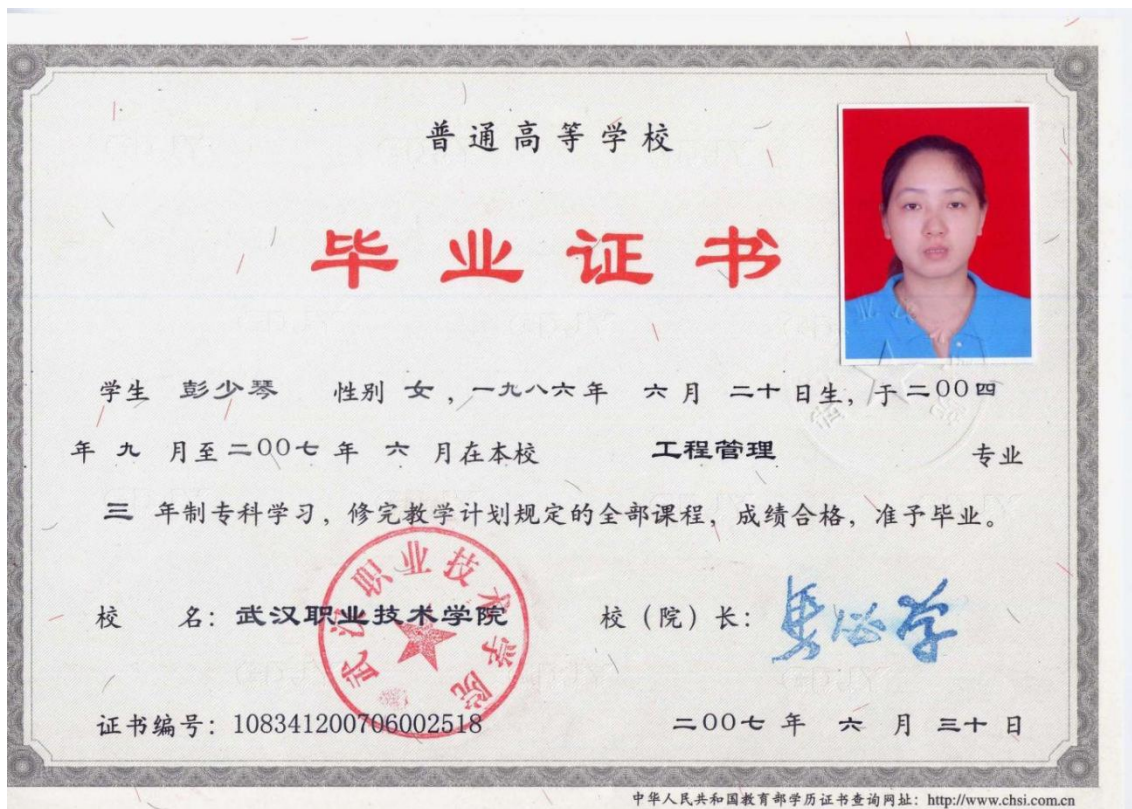 普通高等学校
毕业证书
学生 彭少琴 性别 女，一九八六年 六月 二十日生，于二00四
年 九 月至二00七 年 六 月在本校 工程管理 专业
三 年制专科学习，修完教学计划规定的全部课程，成绩合格，准予毕业。
武汉职业技术学院
校 名：武汉职业技术学院 校（院）长：
证书编号：108341200706002518 二00七 年 六 月 三十 日
中华人民共和国教育部学历证书查询网址：http://www.chsi.com.cn